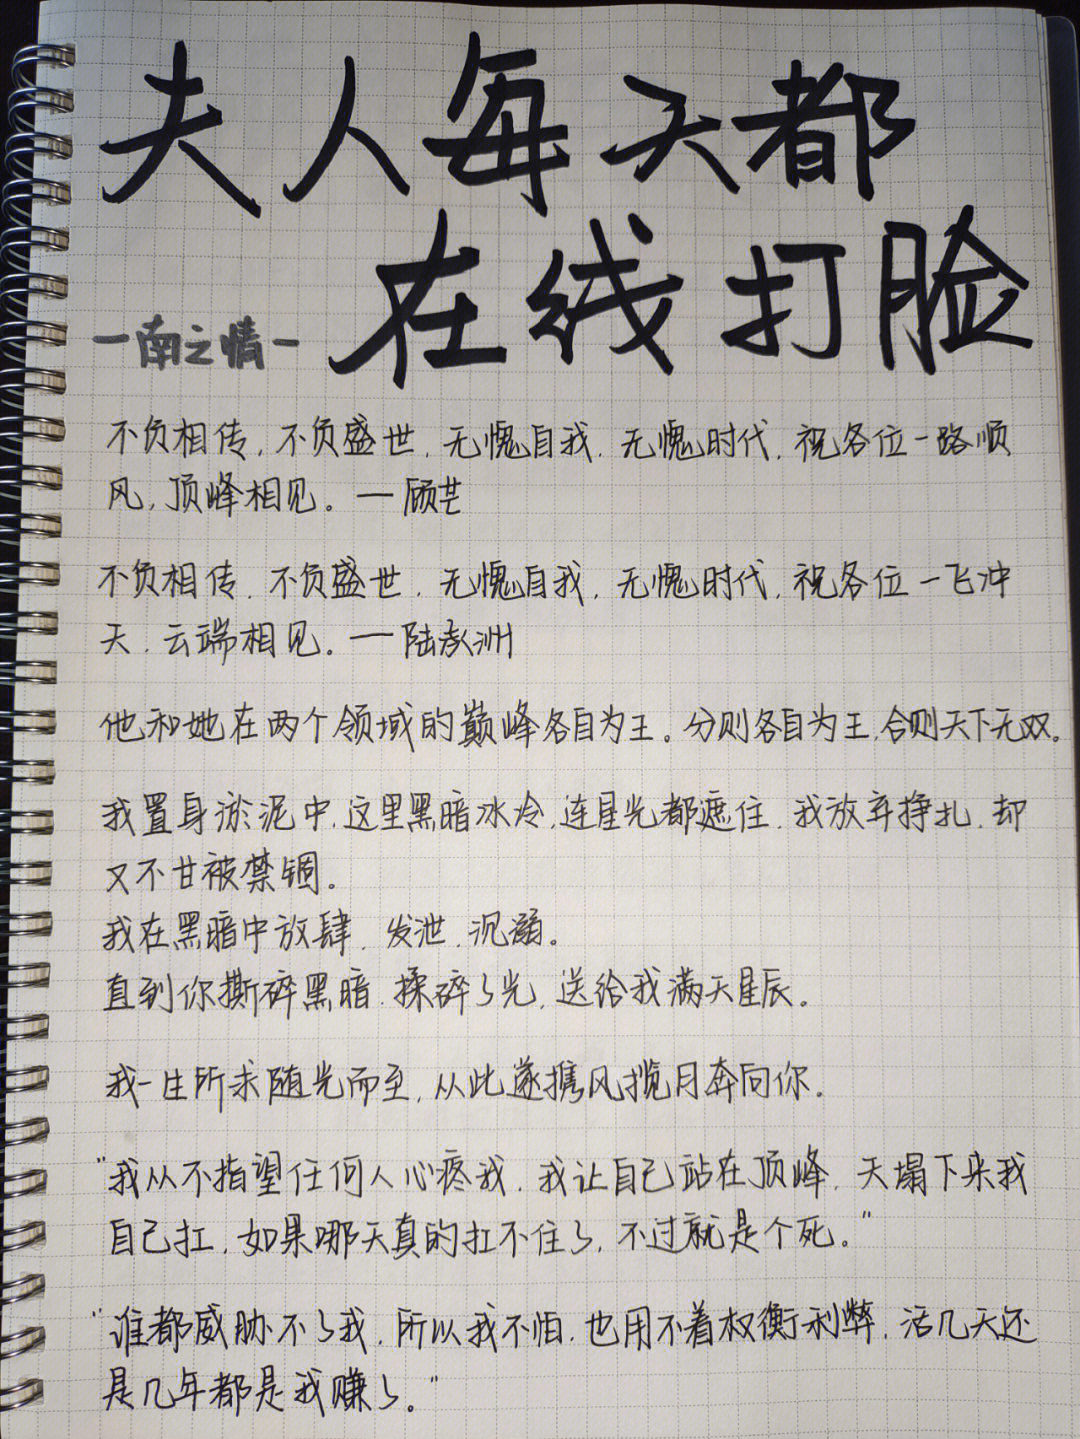 夫人每天都
在线打脸
一南之情一
不负相传，不负盛世，无愧自我，无愧时代，祝各位一路顺
风，顶峰相见。一顾芒
不负相传，不负盛世，无愧自我，无愧时代，祝各位一飞冲
天，云端相见。一陆承洲
他和她在两个领域的巅峰各自为王。分则各自为王，合则天下无双。
我置身淤泥中，这里黑暗冰冷，连星光都遮住，我放弃挣扎，却
又不甘被禁锢。
我在黑暗中放肆，发泄，沉溺。
直到你撕碎黑暗，揉碎了光，送给我满天星辰。
我一生所求随光而至，从此遂携风揽月奔向你。
“我从不指望任何人心疼我，我让自己站在顶峰，天塌下来我
自己扛，如果哪天真的扛不住了，不过就是个死。”
“谁都威胁不了我，所以我不怕，也用不着权衡利弊，活几天还
是几年都是我赚了。”